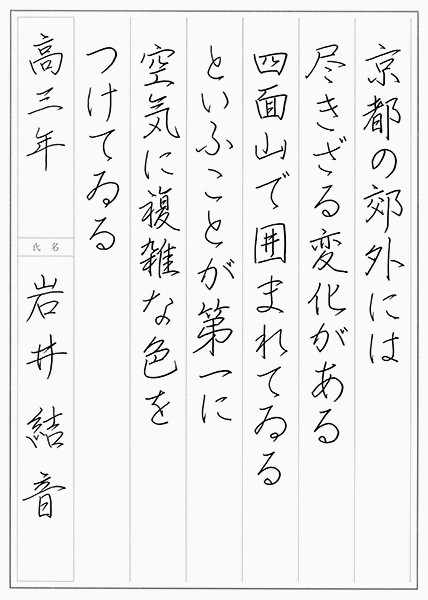 京都の郊外には
尽きざる変化がある
四面山で囲まれてゐる
といふことが第一に
空気に複雑な色を
つけてゐる
高三年
氏名
岩井結音